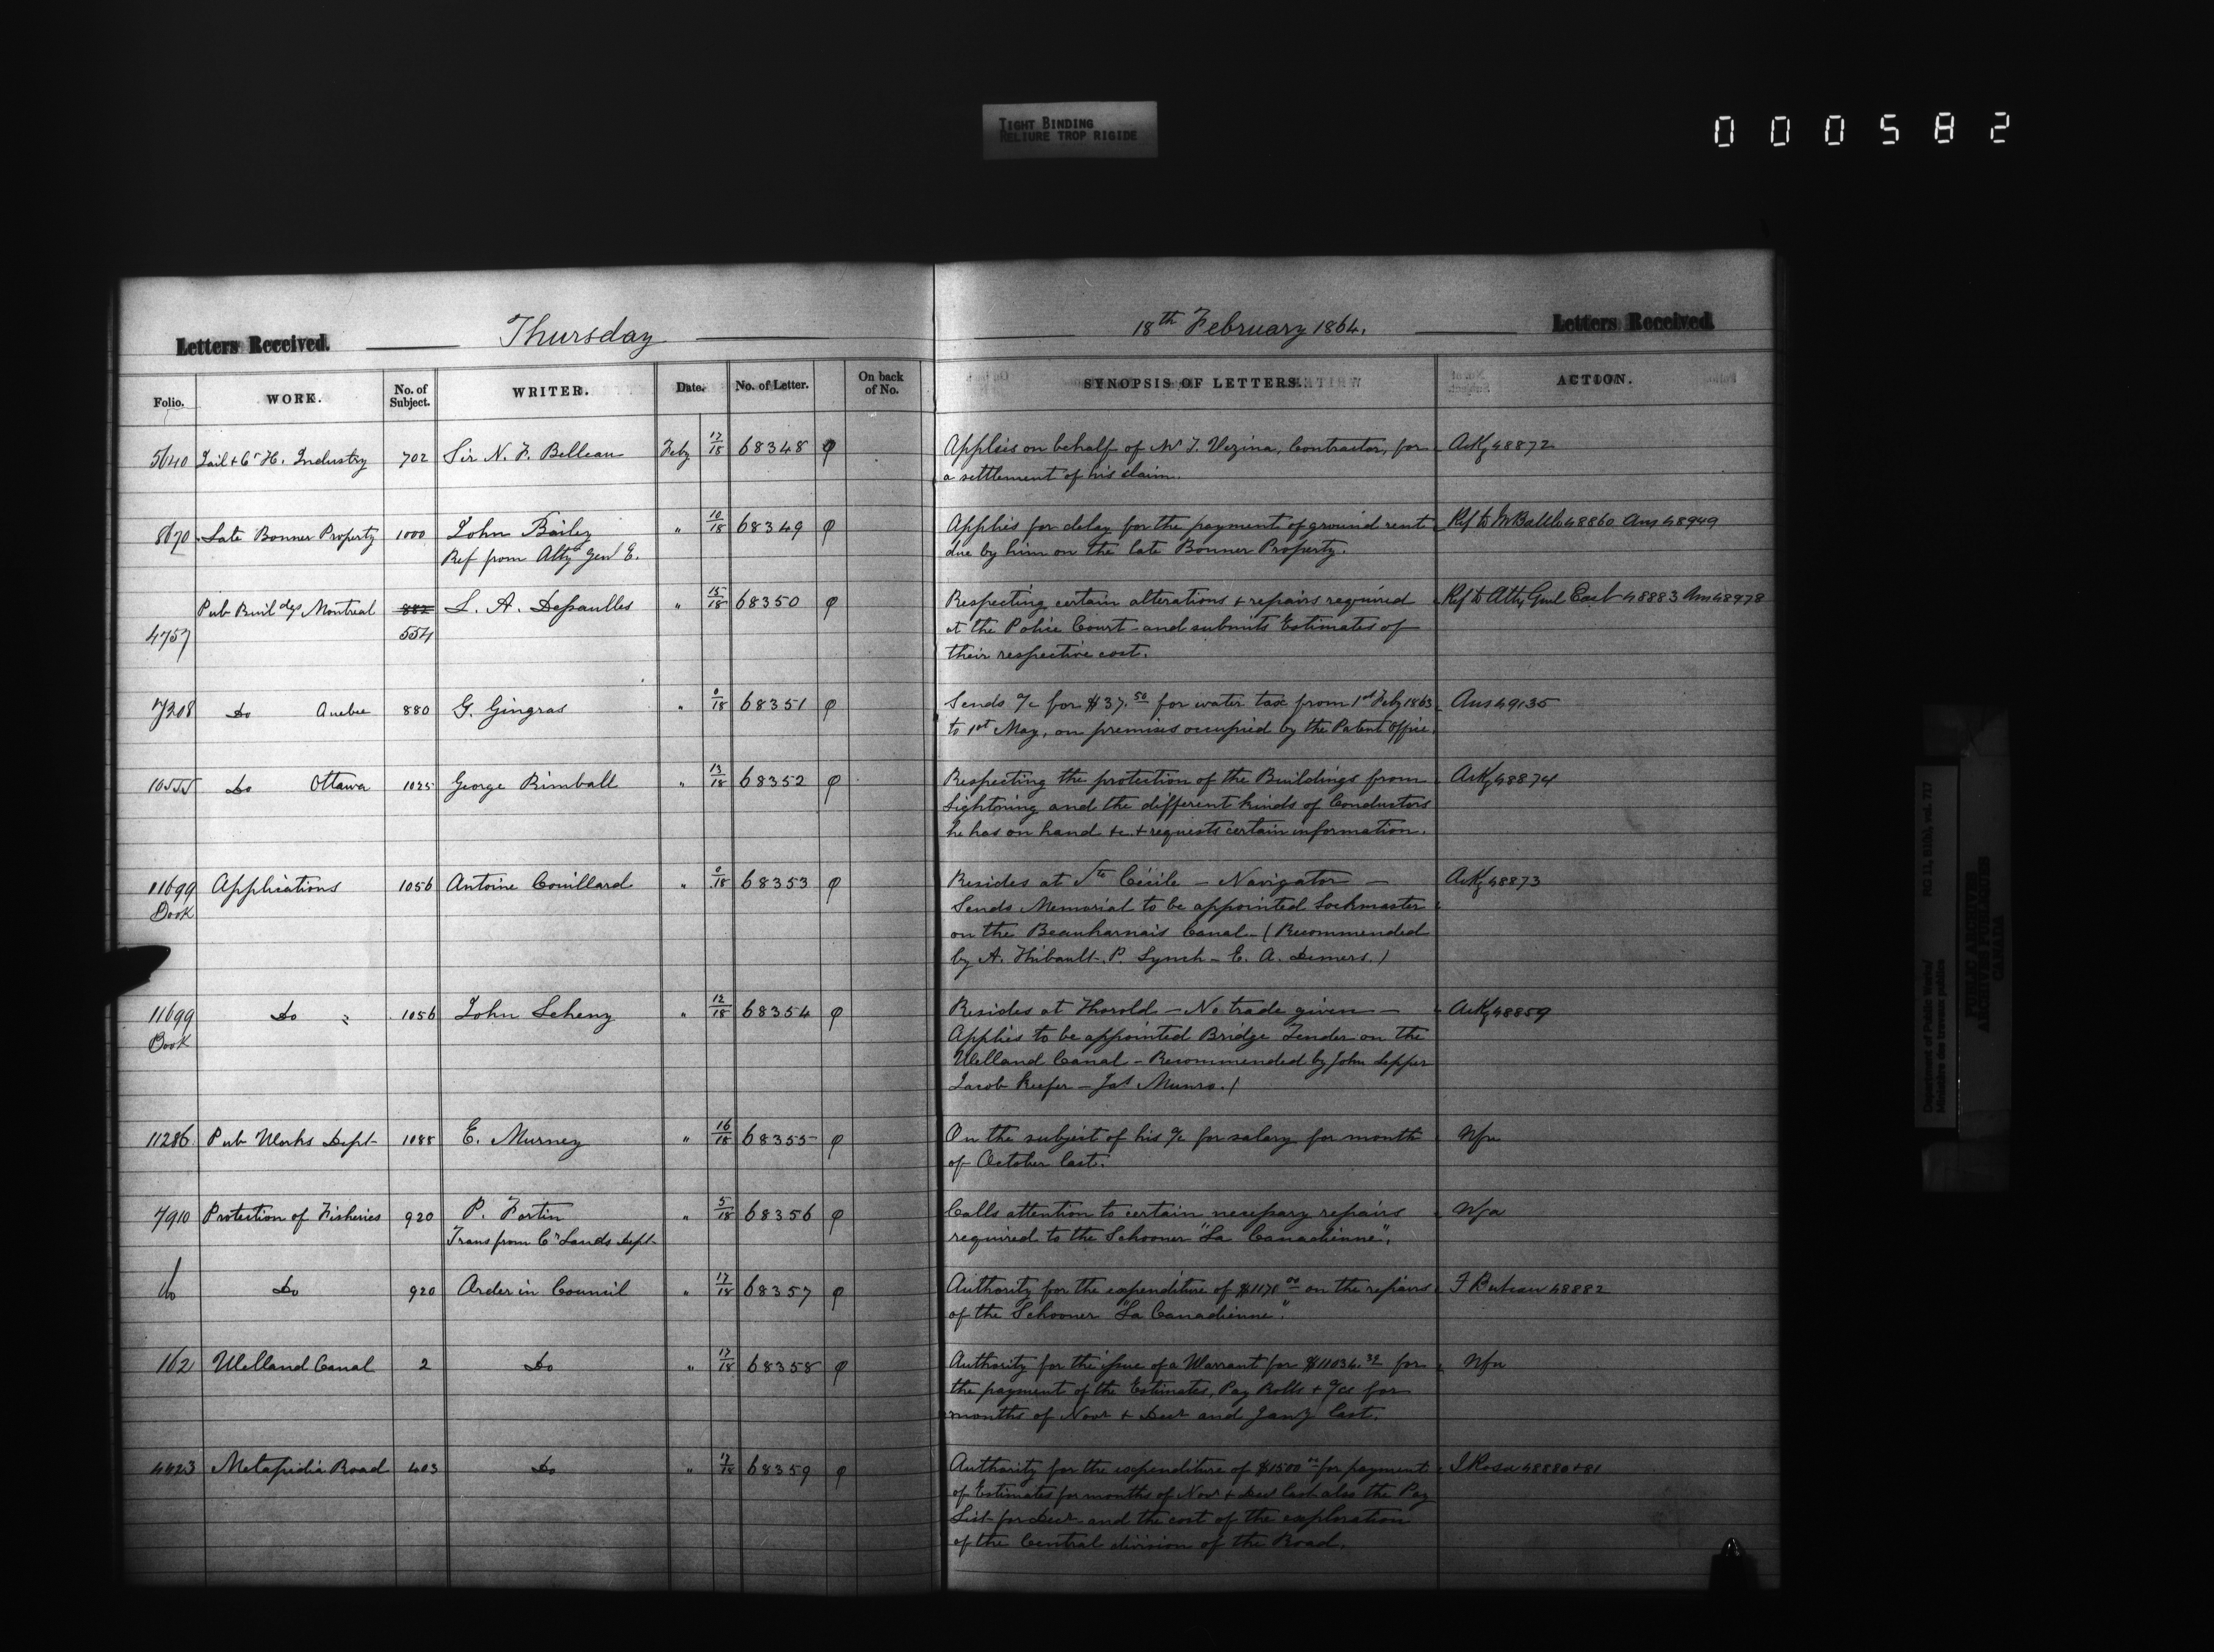 TIGHT BINDING
RELIURE TROP RIGIDE
000582
Letters Received. Thursday 18th February 1864. Letters Received.
Folio. WORK. No. of Subject. WRITER. Date. No. of Letter. On back of No. SYNOPSIS OF LETTERS. ACTION.
5640 Jail & Ct H. Industry 702 Sir N. F. Belleau Feby 17/18 68348 φ Applies on behalf of Mr J. Vezina, Contractor, for Ack 48872
a settlement of his claim.
8670 Late Bonner Property 1000 John Bailey " 10/18 68349 φ Applies for delay for the payment of ground rent Ref to 48860 Ans 48949
Ref from Atty Genl E. due by him on the late Bonner Property.
Pub Buildgs Montreal 882 L. A. Dessaulles " 15/18 68350 φ Respecting certain alterations & repairs required Ref to Atty Genl East 48883 Ans 48978
4757 554 at the Police Court and submits Estimates of
their respective cost.
7208 Do Quebec 880 G. Gingras " 0/18 68351 φ Sends a/c for $37.50 for water tax from 1st Feby 1863 Ans 49135
to 1st May, on premises occupied by the Patent Office.
10555 Do Ottawa 1025 George Kimball " 13/18 68352 φ Respecting the protection of the Buildings from Ack 48874
Lightning and the different kinds of Conductors
he has on hand &c. & requests certain information.
11699 Applications 1056 Antoine Couillard " 0/18 68353 φ Resides at Ste Cécile — Navigator — Ack 48873
Book Sends Memorial to be appointed Lockmaster
on the Beauharnais Canal — (Recommended
by A. Thibault — P. Lynch — E. A. Demers.)
11699 Do " 1056 John " 12/18 68354 φ Resides at Thorold — No trade given — Ack 48859
Book Applies to be appointed Bridge Tender on the
Welland Canal — Recommended by John
Jacob Keefer — Jas Munro.)
11286 Pub Works Dept 1088 E. Murney " 16/18 68355 φ On the subject of his a/c for salary for month Nfa
of October last.
7910 Protection of Fisheries 920 P. Fortin " 5/18 68356 φ Calls attention to certain necessary repairs Nfa
Trans from Cn Lands Dept required to the Schooner "La Canadienne".
Do Do 920 Order in Council " 17/18 68357 φ Authority for the expenditure of $1170.00 on the repairs F Buteau 48882
of the Schooner "La Canadienne".
162 Welland Canal 2 Do " 17/18 68358 φ Authority for the issue of a Warrant for $11034.32 for Nfa
the payment of the Estimates, Pay Rolls & a/cs for
months of Novr & Decr and Jany last.
4423 Metapedia Road 403 Do " 17/18 68359 φ Authority for the expenditure of $1500.00 for payment J Rosa 48880 & 81
of Estimates for months of Novr & Decr last also the Pay
List for Decr and the cost of the exploration
of the Central division of the Road.
Department of Public Works/
Ministère des travaux publics
RG 11, B1(b), vol. 717
PUBLIC ARCHIVES
ARCHIVES PUBLIQUES
CANADA